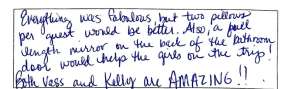 Everything was fabulous, but two pillows
per guest would be better. Also, a full
length mirror on the back of the bathroom
door would help the girls on the trip!
Both Vass and Kelley are AMAZING!!